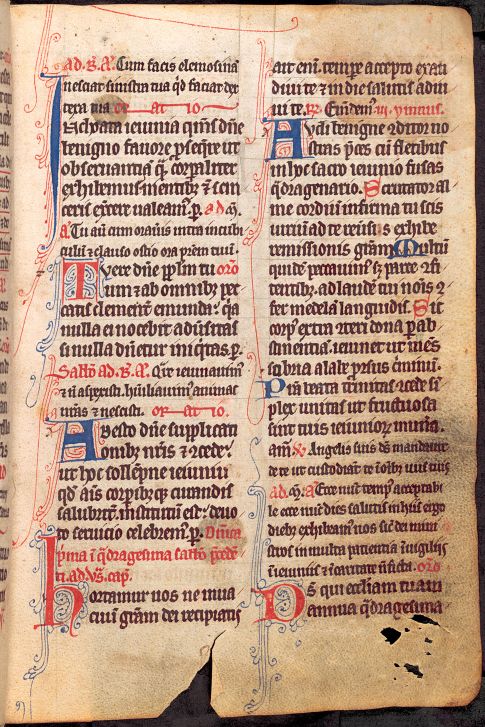 ad. b. a. Cum facis elemosinā
nesciat sinistra tua qd faciat dex
tera tua or at io
Inchoata ieiunia qms dne
benigno favore pseqre ut
observantiā q corpaliter
exhibemus mentib z sin
ceris exercere valeam. p. ad. m.
a. Tu aut cum oraveris intra in cubi
culū z clauso ostio ora prem tuū.
Tuere dne pplm tuū oro
um z ab omnibz pec
catis clement emunda qa
nulla ei nocebit adversitas
si nulla dnetur iniqtas. p.
Sabbo ad. b. a. Qre ieiunavim
z nō aspexisti. hūiliavim animas
nras z nescisti. or at io.
Adesto dne supplicati
onibz nris z ccede.
ut hoc sollempne ieiuniū
qd aīs corpibzqz curandis
salubriter institutū est. devo
to servicio celebrem. p. Dnica
prima ī qdragesima sabbo preced
ti. ad. vs. cap.
Hortamur vos ne in va
cuū grām dei recipiatis
ait eni. tempe accepto exau
divi te z in die salutis adiu
vi te. R. Eiusdem. ymnus.
Audi benigne conditor no
stras pces cū fletibus
in hoc sacro ieiunio fusas
qdragenario. Scrutator al
me cordiū infirma tu scis
viriū ad te reversis exhibe
remissionis grām. Multū
quide peccavim sz parce cfi
tentibz. ad laude tui nois z
fer medelā languidis. Sic
corp extra cteri dona p ab
stinentiā. ieiunet ut mēs
sobria a labe prorsus criminū.
Psta beata trinitas ccede sī
plex unitas ut fructuosa
sint tuis ieiuniorz munera.
am. V. Angelis suis ds mandavit
de te ut custodiāt te ī oībz viis tuis
ad. m. a. Ecce nūc temp acceptabi
le ecce nūc dies salutis in hiis ergo
diebz exhibeam nos sic dei mini
stros in multa patientia ī vigiliis
ī ieiuniis z ī caritate nō ficta. oro
Ds qui eccliam tuam
annua qdragesima